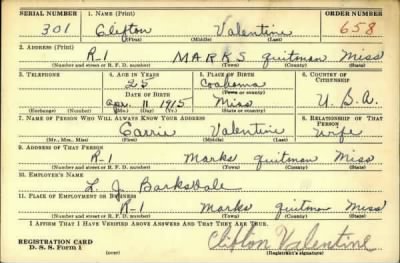 SERIAL NUMBER 1. NAME (Print) ORDER NUMBER
301 Clifton Valentine 658
(First) (Middle) (Last)
2. ADDRESS (Print)
R-1 MARKS Quitman Miss
(Number and street or R. F. D. number) (Town) (County) (State)
3. TELEPHONE 4. AGE IN YEARS 5. PLACE OF BIRTH 6. COUNTRY OF CITIZENSHIP
25 Coahoma
DATE OF BIRTH (Town or county)
Apr. 11 1915 Miss U.S.A.
(Exchange) (Number) (Mo.) (Day) (Yr.) (State or country)
7. NAME OF PERSON WHO WILL ALWAYS KNOW YOUR ADDRESS 8. RELATIONSHIP OF THAT PERSON
Carrie Valentine Wife
(Mr., Mrs., Miss) (First) (Middle) (Last)
9. ADDRESS OF THAT PERSON
R-1 Marks Quitman Miss
(Number and street or R. F. D. number) (Town) (County) (State)
10. EMPLOYER'S NAME
L. J. Barksdale
11. PLACE OF EMPLOYMENT OR BUSINESS
R-1 Marks Quitman Miss
(Number and street or R. F. D. number) (Town) (County) (State)
I AFFIRM THAT I HAVE VERIFIED ABOVE ANSWERS AND THAT THEY ARE TRUE.
REGISTRATION CARD
D. S. S. Form 1 Clifton Valentine
(over) (Registrant's signature)